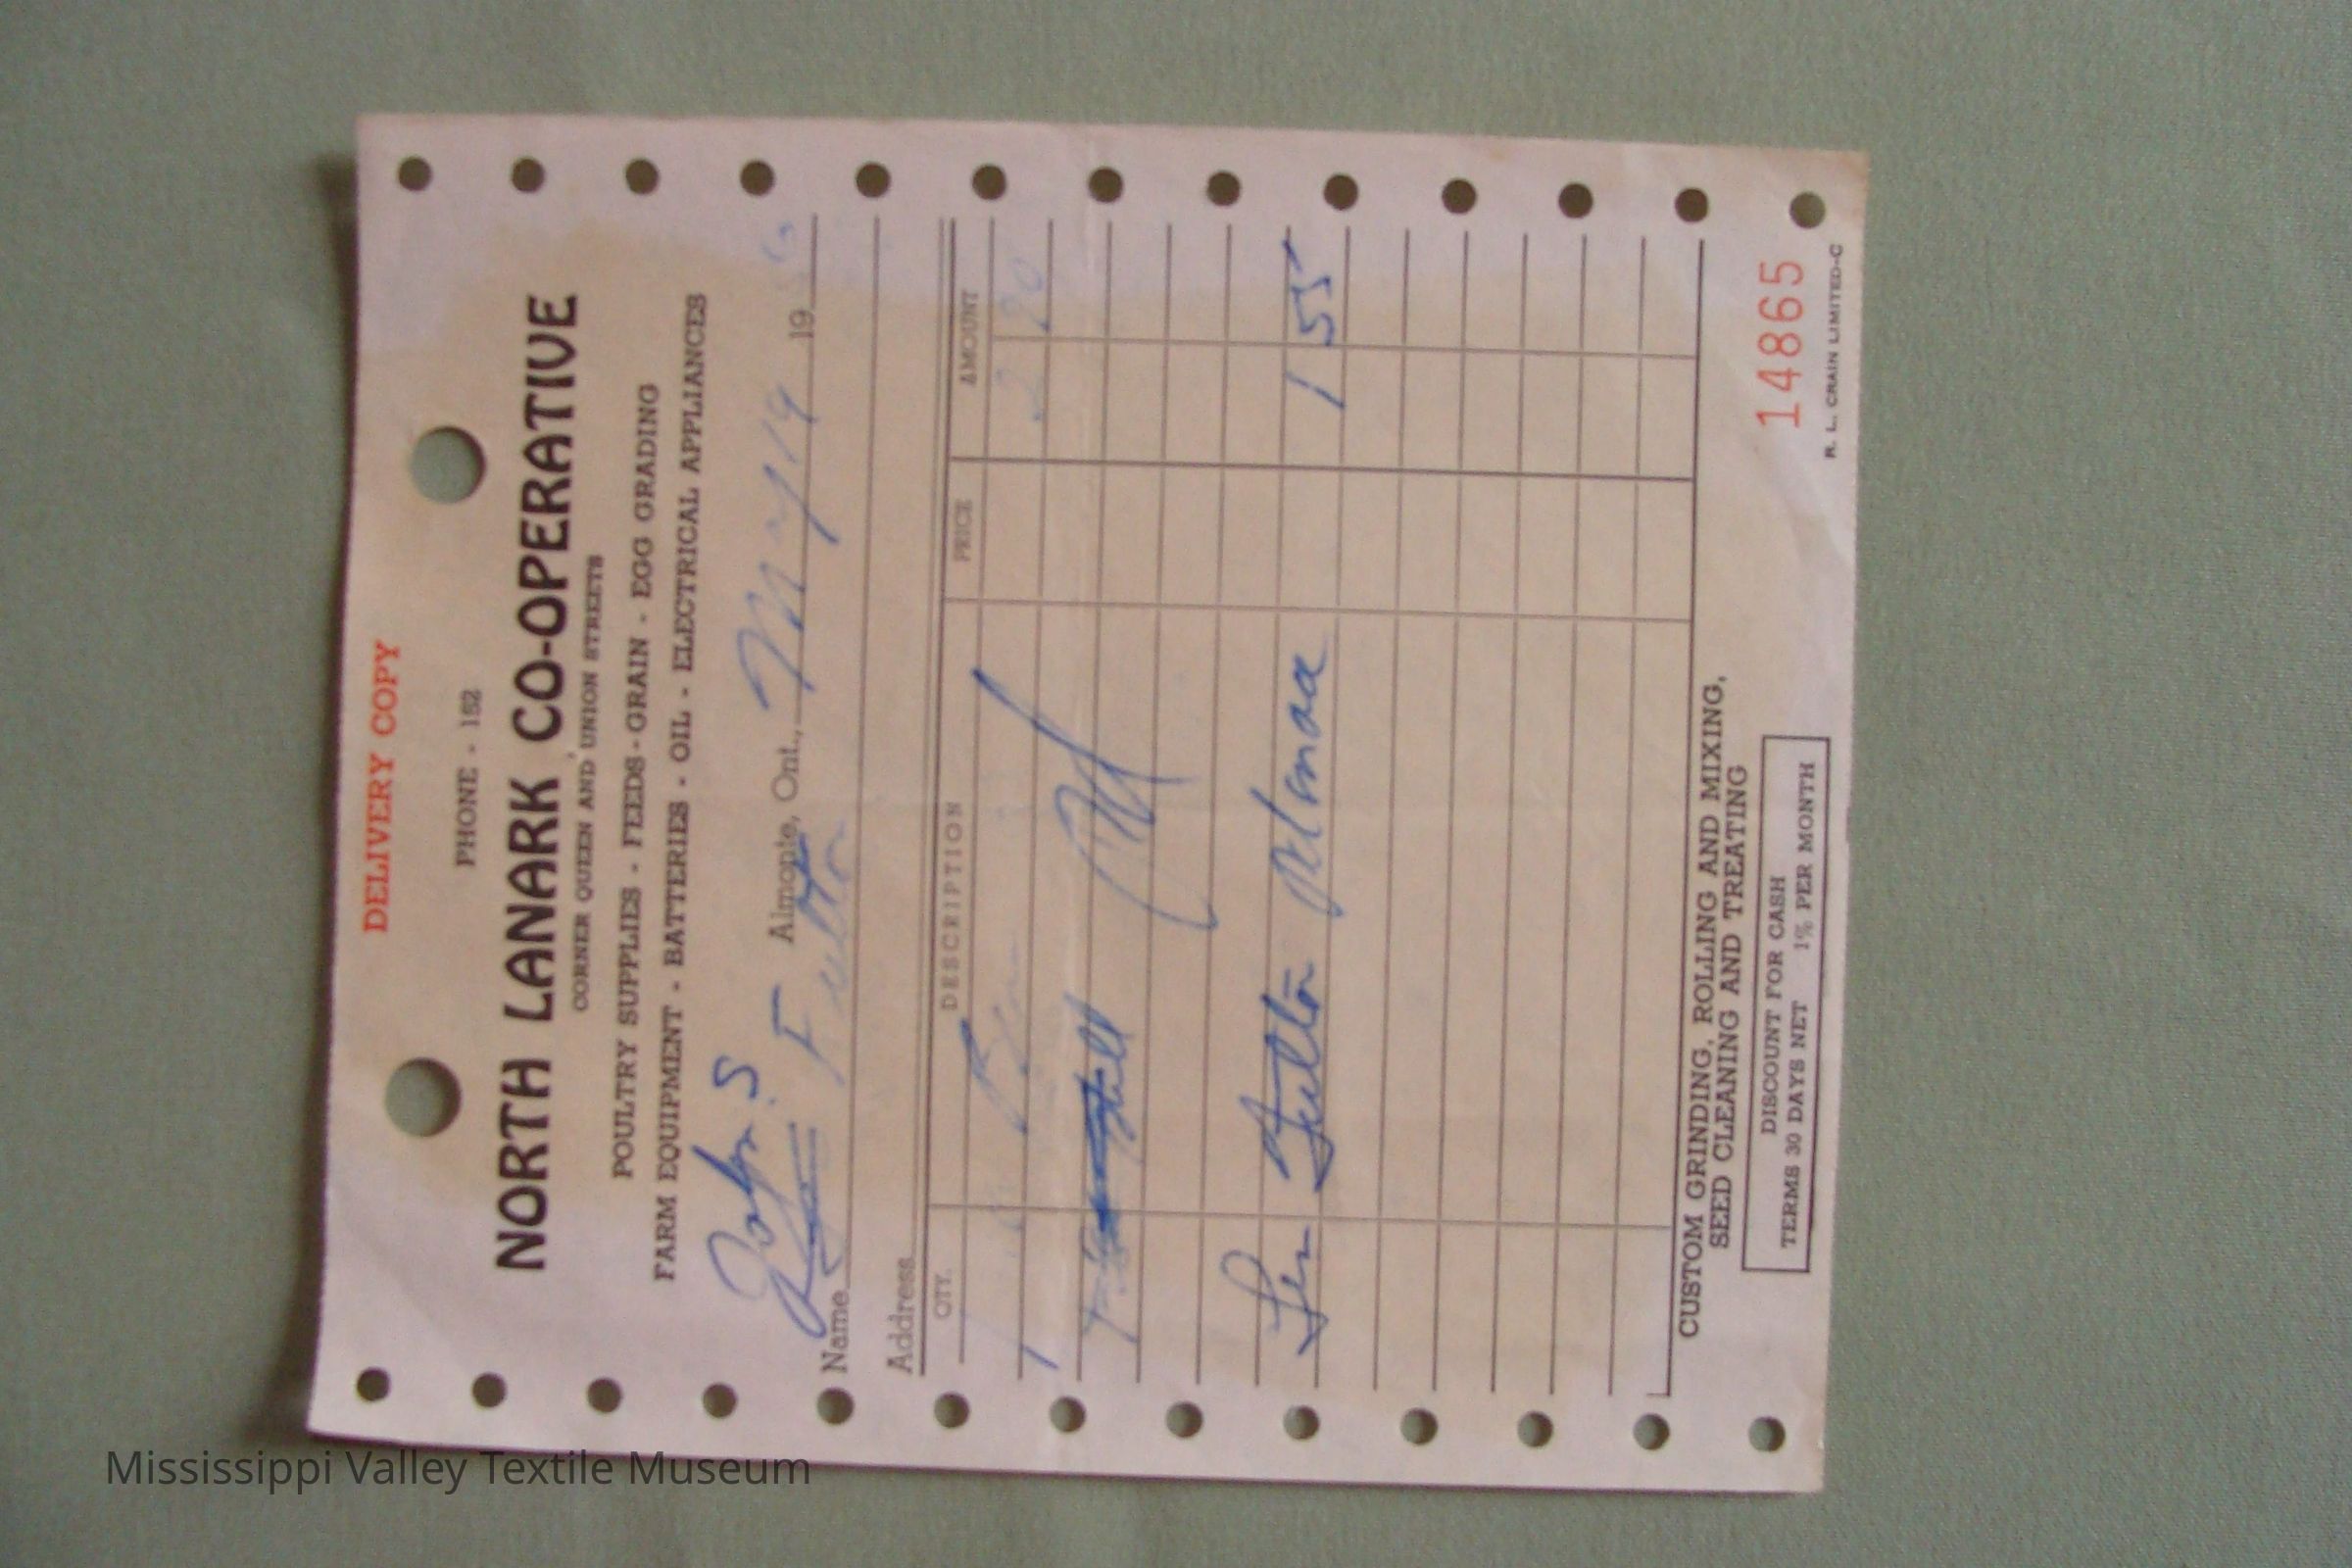 DELIVERY COPY
PHONE - 152
NORTH LANARK CO-OPERATIVE
CORNER QUEEN AND UNION STREETS
POULTRY SUPPLIES - FEEDS - GRAIN - EGG GRADING
FARM EQUIPMENT - BATTERIES - OIL - ELECTRICAL APPLIANCES
John S
Almonte, Ont., May 19 19
Name Fulton
Address
QTY. DESCRIPTION PRICE AMOUNT
2 20
Len Fulton 1 55
CUSTOM GRINDING, ROLLING AND MIXING,
SEED CLEANING AND TREATING
DISCOUNT FOR CASH
TERMS 30 DAYS NET 1% PER MONTH
14865
R. L. CRAIN LIMITED-C
Mississippi Valley Textile Museum